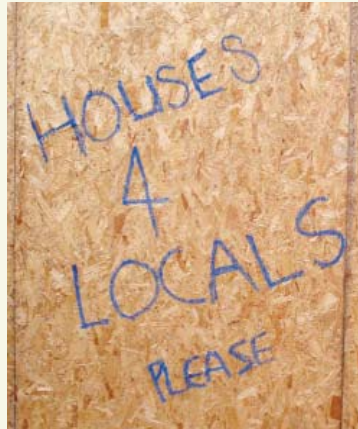 HOUSES
4
LOCALS
PLEASE